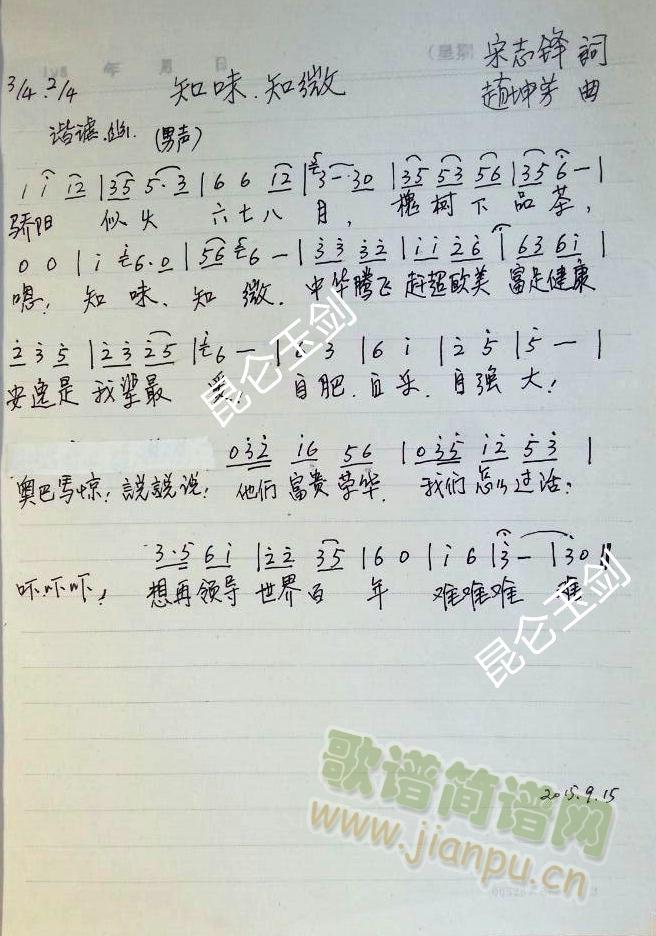 年 月 日 (星期
宋志锋 詞
3/4 2/4 知味.知微
趙坤芳 曲
(男声)
1 i i2 |35 5·3 |6 6 i2 |3— ·30 |35 53 56 |35 6 — |
骄阳 似火 六七八 月， 槐树下 品茶，
0 0 | i 6·0 |56 6 — |3 3 32 |i i 26 | 63 6i |
嗯！ 知 味、知 微. 中华腾飞 赶超欧美 富足健康
2 3 5 |23 25 |6 — |6 3 |6 i |2 5 |5 — |
安逸是 我辈最 爱！ 自肥.自乐.自强 大！
032 i6 56 |035 i2 53 |
奥巴馬惊！説説说！ 他们 富貴荣华. 我们 怎么过活？
3·5 6i |22 35 |6 0 |i 6 |3— |30 ‖
吓吓吓！ 想再领导 世界百 年 难难难 难
昆仑玉剑
昆仑玉剑
2015.9.15
歌谱简谱网
www.jianpu.cn